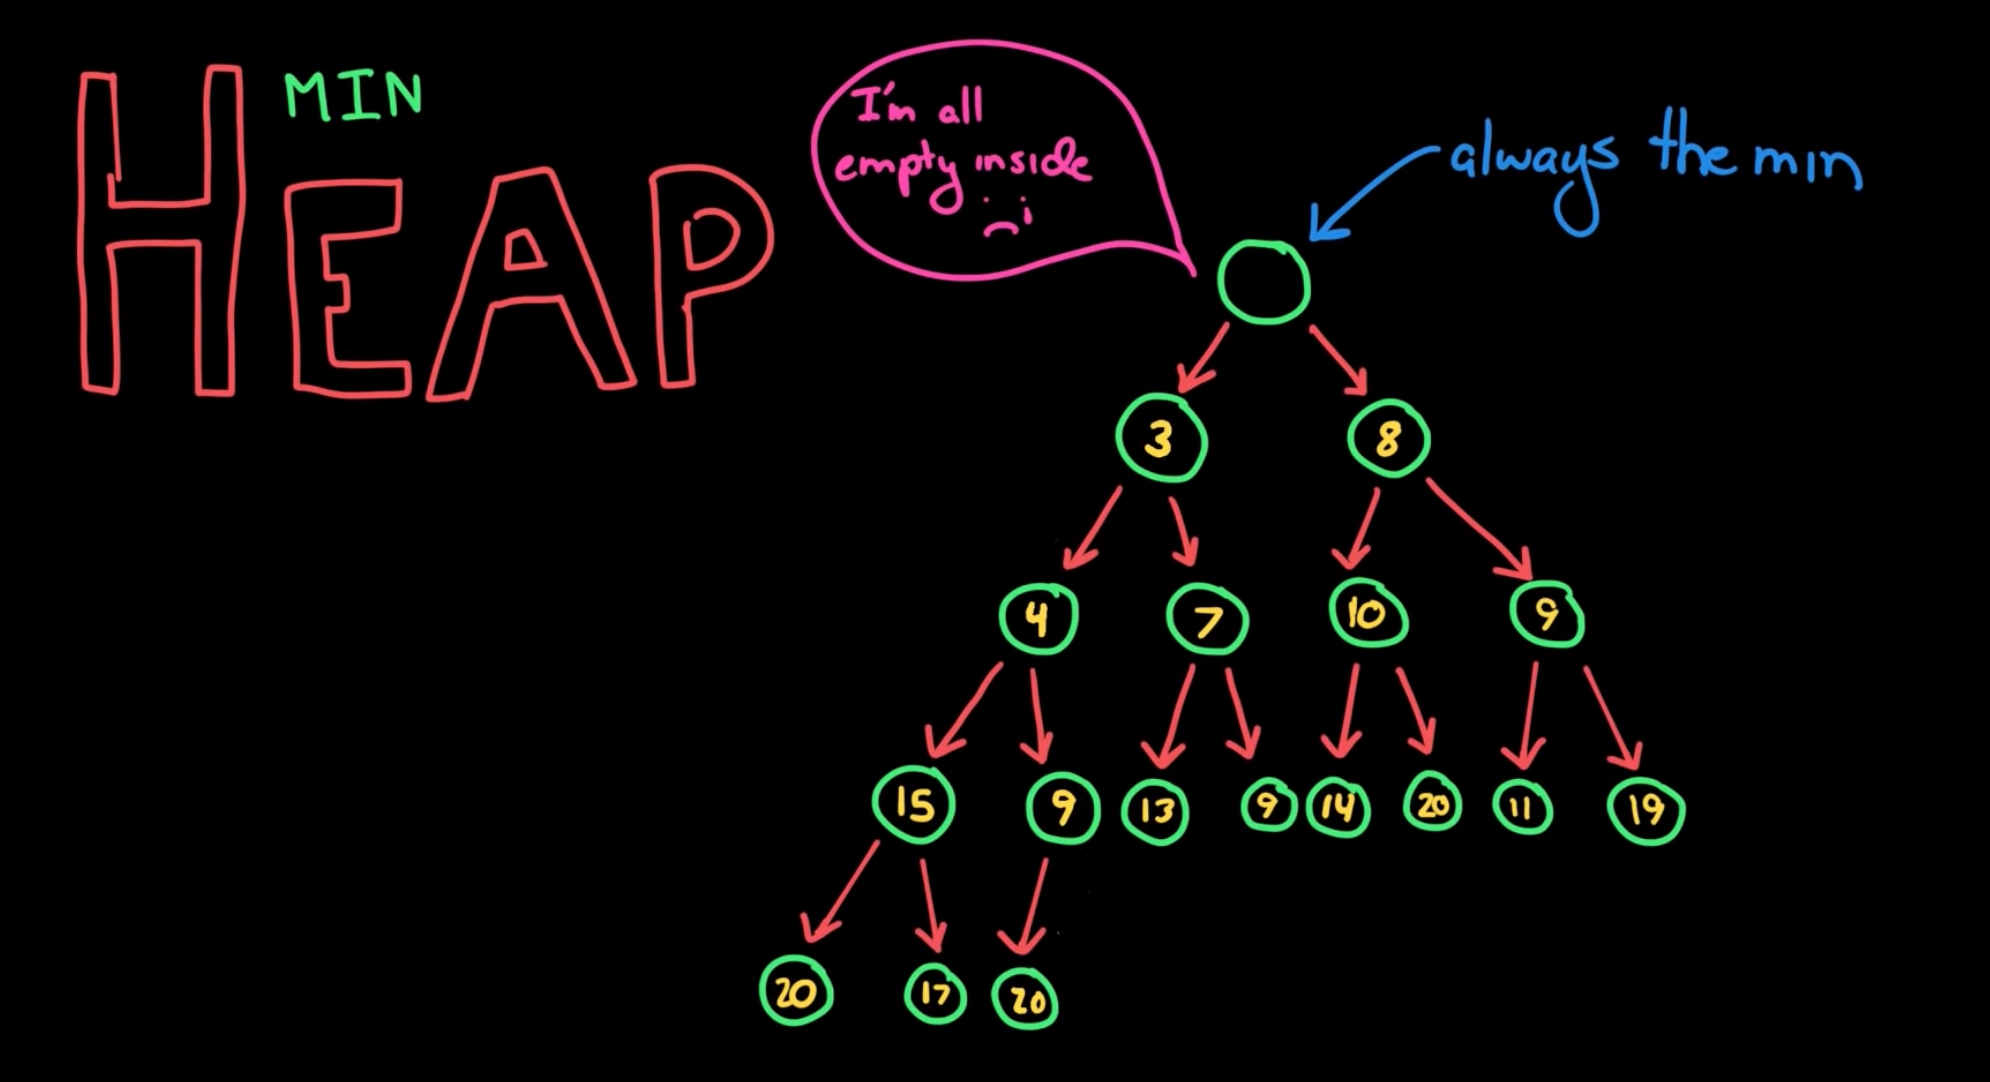 MIN
HEAP
I'm all
empty inside
:(
always the min
3
8
4
7
10
9
15
9
13
9
14
20
11
19
20
17
20